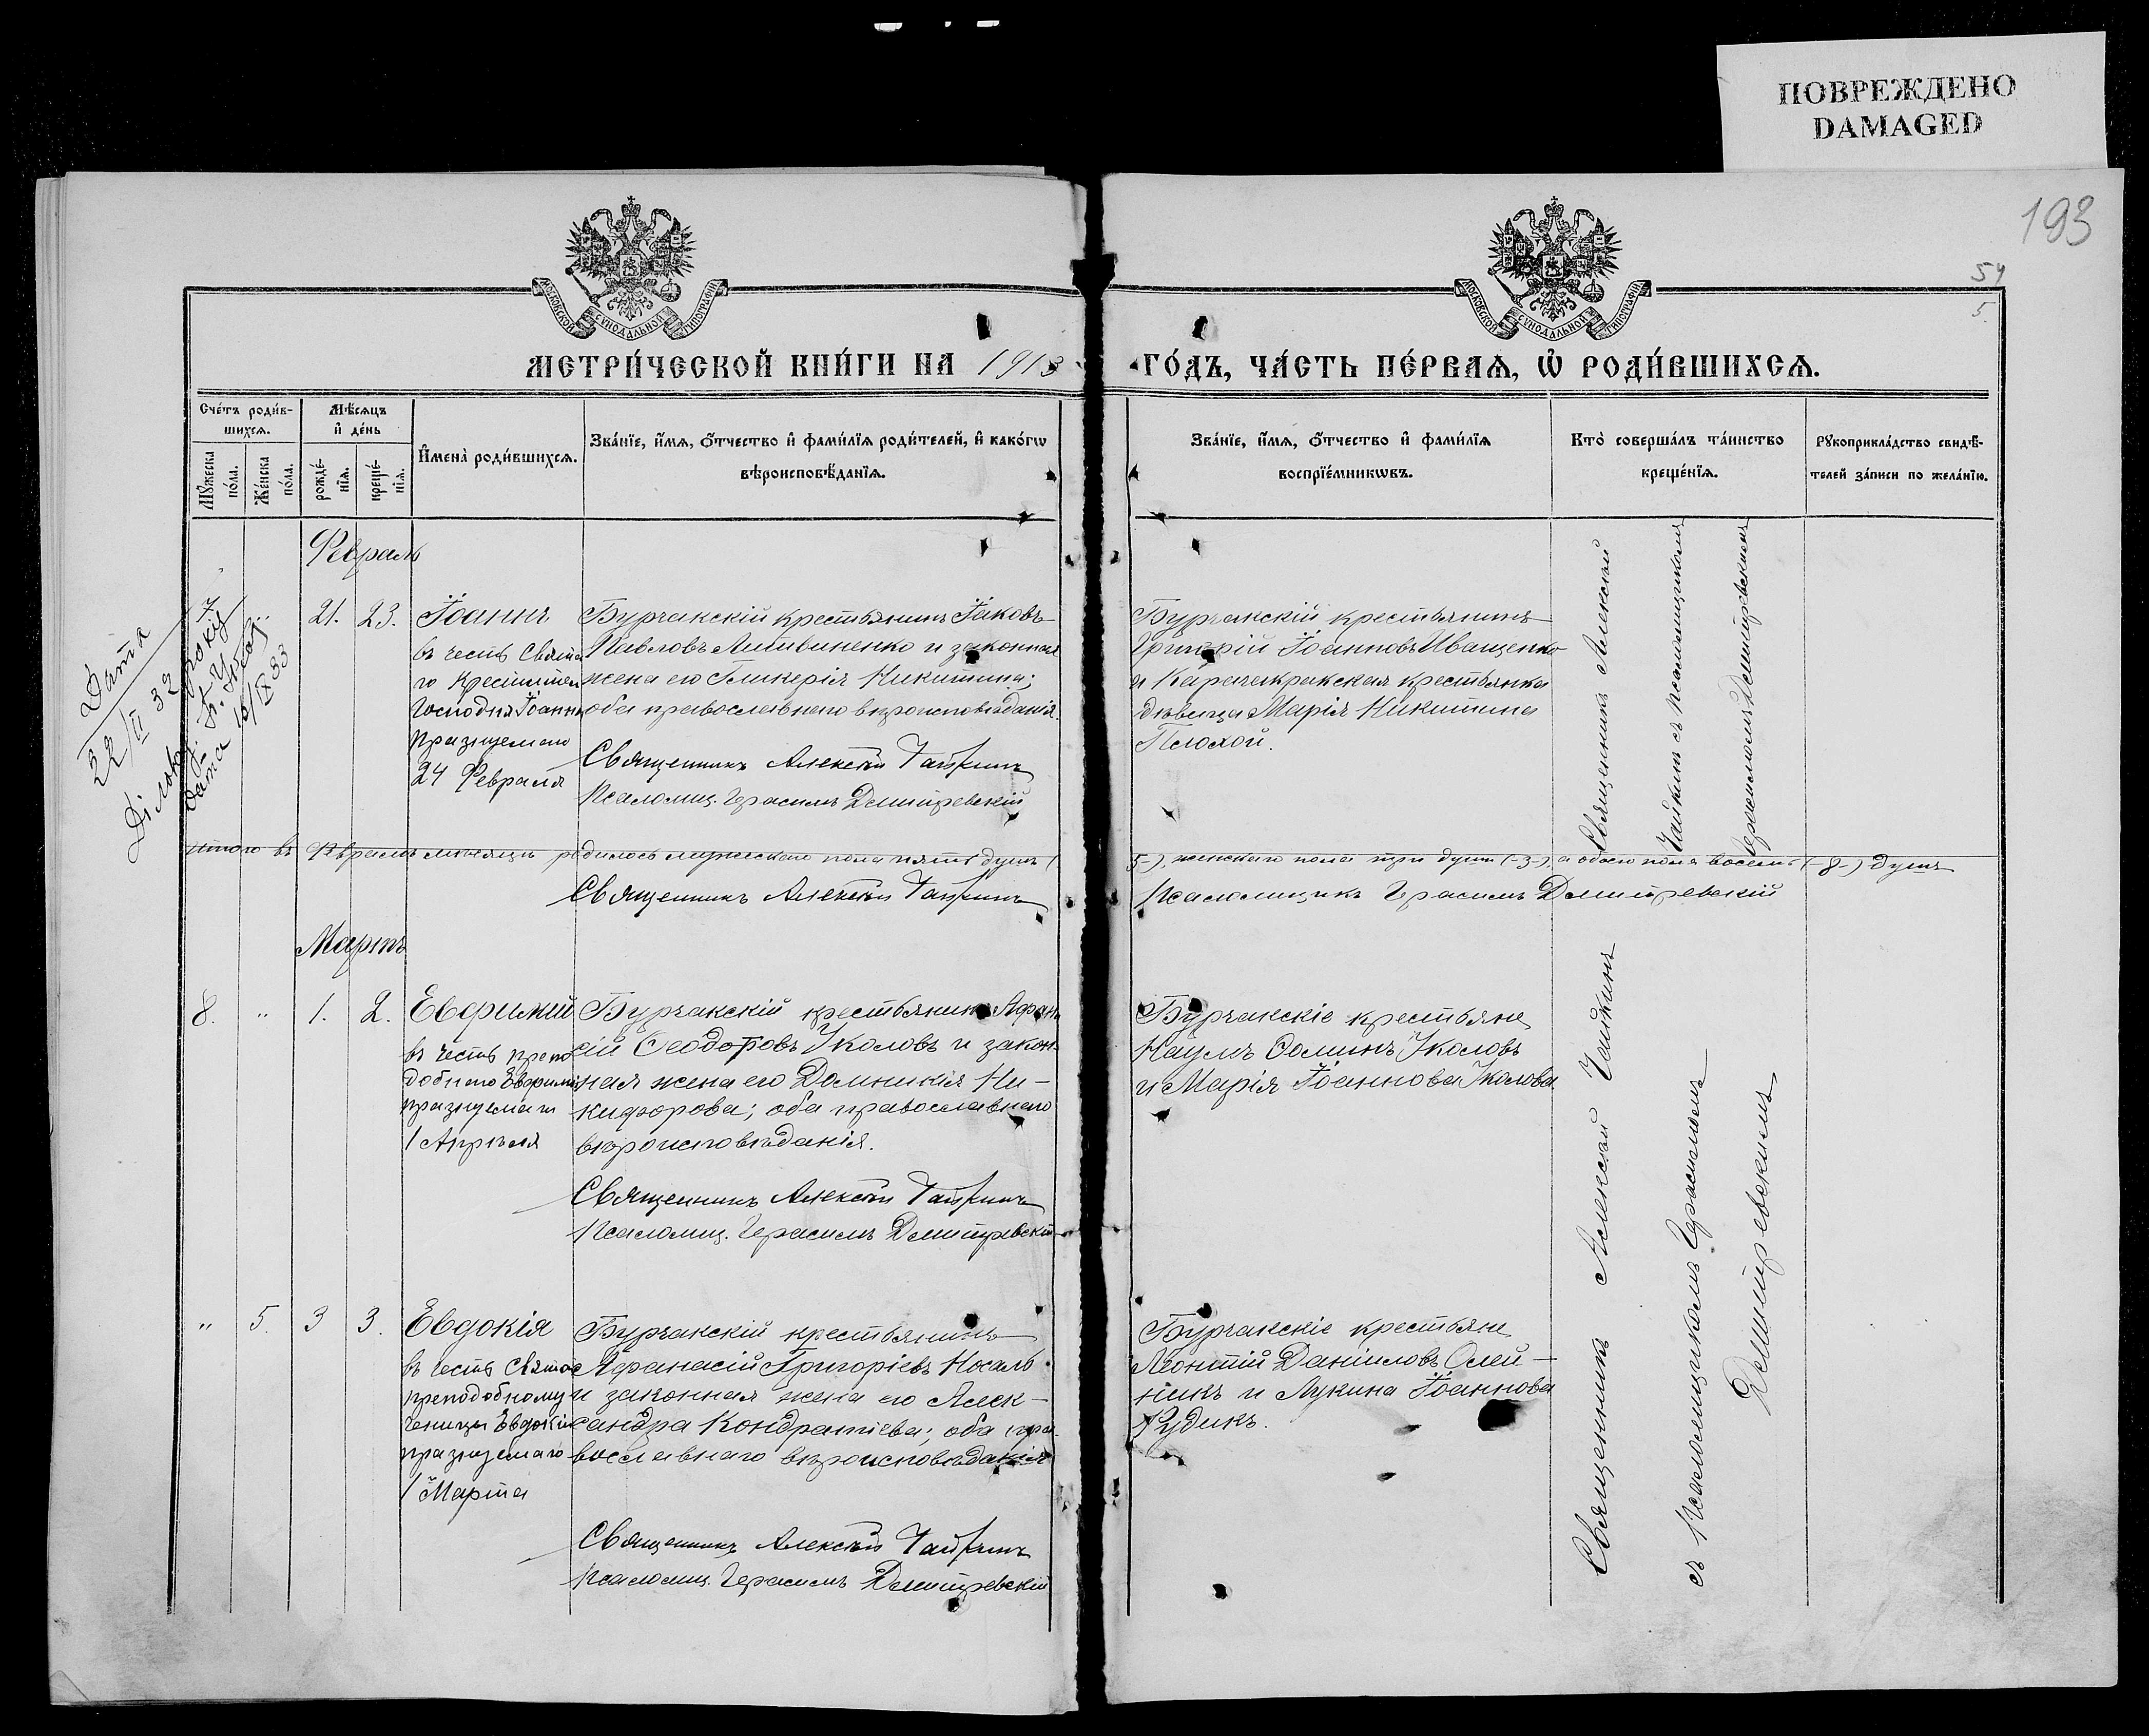 ПОВРЕЖДЕНО
DAMAGED
193
54
5.
МОСКОВСКОЙ СѴНОДАЛЬНОЙ ТИПОГРАФІИ
МОСКОВСКОЙ СѴНОДАЛЬНОЙ ТИПОГРАФІИ
МЕТРИ́ЧЕСКОЙ КНИ́ГИ НА 1913 ГО́ДЪ, ЧА́СТЬ ПЕ́РВАѦ, Ѡ҆ РОДИ́ВШИХСѦ.
Сче́тъ роди́в-
шихсѧ.
Мꙋ́жеска
по́ла.
Же́нска
по́ла.
Мѣ́сѧцъ
и҆ де́нь
рожде́-
нїѧ.
креще́-
нїѧ.
И҆мена̀ роди́вшихсѧ.
Зва́нїе, и҆́мѧ, ѻ҆́тчество и҆ фами́лїѧ роди́телей, и҆ како́гѡ
вѣроисповѣ́данїѧ.
Зва́нїе, и҆́мѧ, ѻ҆́тчество и҆ фами́лїѧ
воспрїе́мникѡвъ.
Кто̀ соверша́лъ та́инство
креще́нїѧ.
Рꙋкоприкла́дство свидѣ́-
телей за́писи по жела́нїю.
Февраль
Дата
22/II 32
7
21. 23.
Іоаннъ
въ честь Свята
го Крестителя
Господня Іоанна
празнуемаго
24 Февраля
Бурчакскій крестьянинъ Іаковъ
Павловъ Литвиненко и законная
жена его Гликерія Никитина;
оба православнаго вѣроисповѣданія.
Священникъ Алексѣй Чайкинъ
Псаломщ. Герасимъ Димитревскій
Бурчакскій крестьянинъ
Григорій Іоанновъ Иващенко
и Карачекракская крестьянка
дѣвица Марія Никитина
Плохой.
Священникъ Алексѣй
Чайкинъ съ псаломщикомъ
Герасимомъ Димитревскимъ
Итого въ Февралѣ мѣсяцѣ родилось мужескаго пола пять душъ (5-), женскаго пола три души (-3-), а обоего пола восемь (-8-) душъ
Священникъ Алексѣй Чайкинъ
Псаломщикъ Герасимъ Димитревскій
Мартъ
8. " 1. 2.
Евфимій
въ честь препо
добнаго Евфимія
празнуемаго
1 Апрѣля
Бурчакскій крестьянинъ Афана
сій Ѳеодоровъ Уколовъ и закон-
ная жена его Домникія Ни-
кифорова; оба православнаго
вѣроисповѣданія.
Священникъ Алексѣй Чайкинъ
Псаломщ. Герасимъ Димитревскій
Бурчакскіе крестьяне
Наумъ Ѳоминъ Уколовъ
и Марія Іоаннова Уколова
" 5. 3 3.
Евдокія
въ честь Святой
преподобному
ченицы Евдокіи
празнуемаго
1 Марта
Бурчакскій крестьянинъ
Афанасій Григоріевъ Носаль
и законная жена его Алек-
сандра Кондратіева; оба пра-
вославнаго вѣроисповѣданія
Священникъ Алексѣй Чайкинъ
Псаломщ. Герасимъ Димитревскій
Бурчакскіе крестьяне
Леонтій Даніиловъ Олей-
никъ и Лукина Іоаннова
Рудикъ.
Священникъ Алексѣй Чайкинъ
съ Псаломщикомъ Герасимомъ
Димитревскимъ